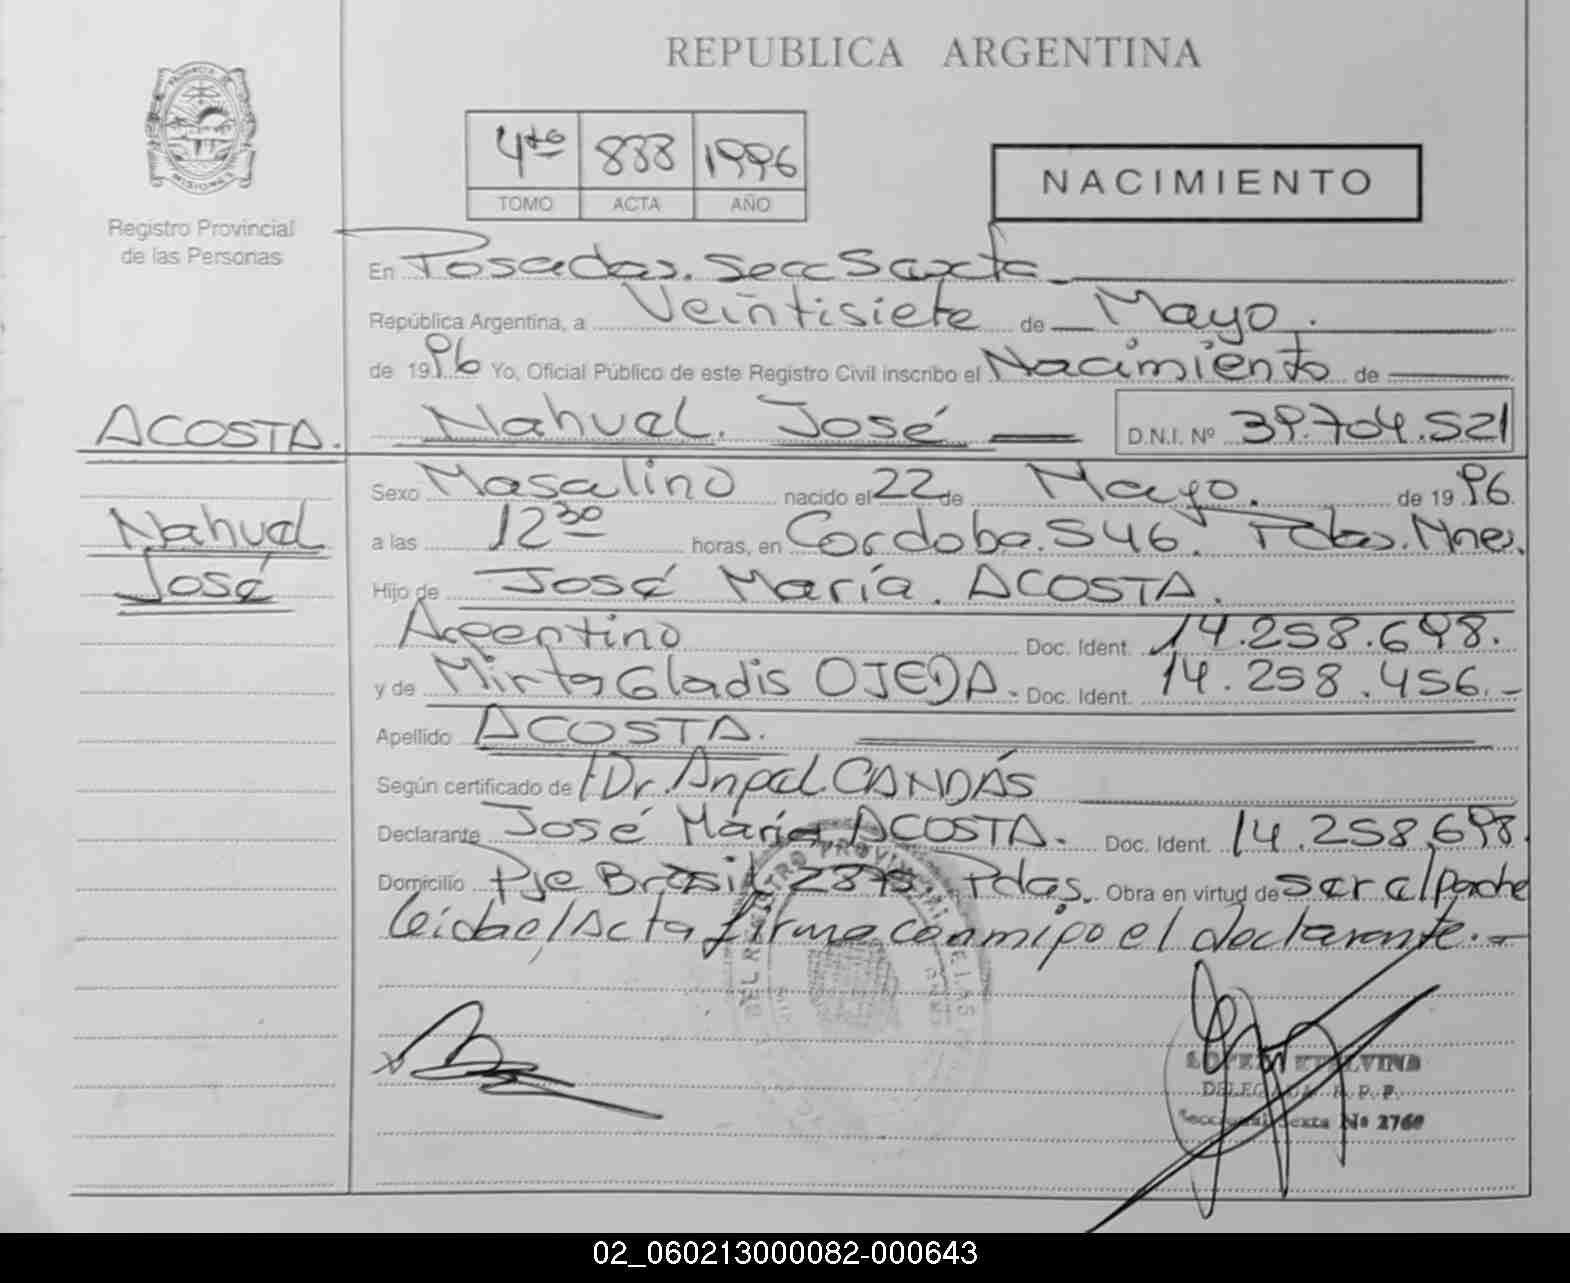 REPUBLICA ARGENTINA
PROVINCIA DE MISIONES
Registro Provincial
de las Personas
4to 833 1996
TOMO ACTA AÑO
NACIMIENTO
En Posadas. Secc Sexta
República Argentina, a Veintisiete de Mayo.
de 1996 Yo, Oficial Público de este Registro Civil inscribo el Nacimiento de
ACOSTA. Nahuel. José D.N.I. Nº 39.704.521
Sexo Masculino nacido el 22 de Mayo. de 1996.
Nahuel
José
a las 12 30 horas, en Cordoba. 546. Pdas. Mnes.
Hijo de José María. ACOSTA.
Argentino Doc. Ident. 14.258.698.
y de Mirta Gladis OJEDA. Doc. Ident. 14.258.456.-
Apellido ACOSTA.
Según certificado de Dr. Angel CANDÁS
Declarante José María ACOSTA. Doc. Ident. 14.258.698.
Domicilio Pje Brasil Pdas. Obra en virtud de ser el padre
leida el Acta firma conmigo el declarante.-
LOPEZ ETELVINA
DELEGADA R. P. P.
Seccional Sexta Nº 2760
02_060213000082-000643